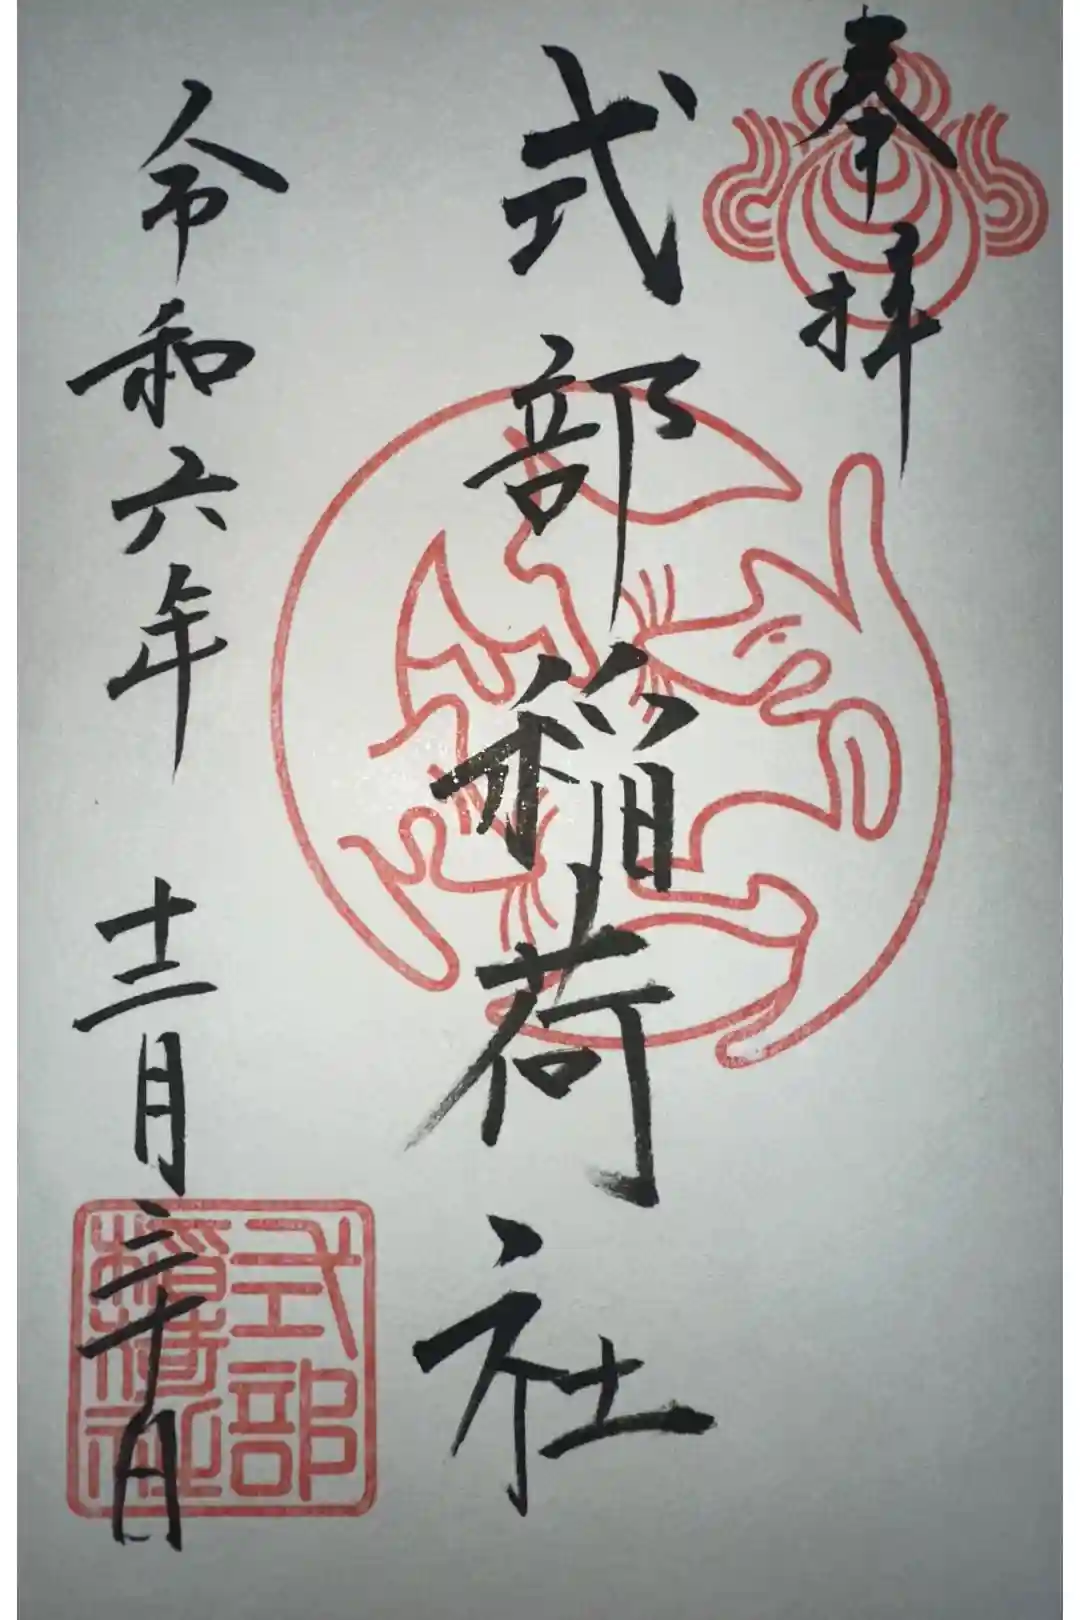 奉拝
式部稲荷社
令和六年 十二月三十日
式部
稲荷社